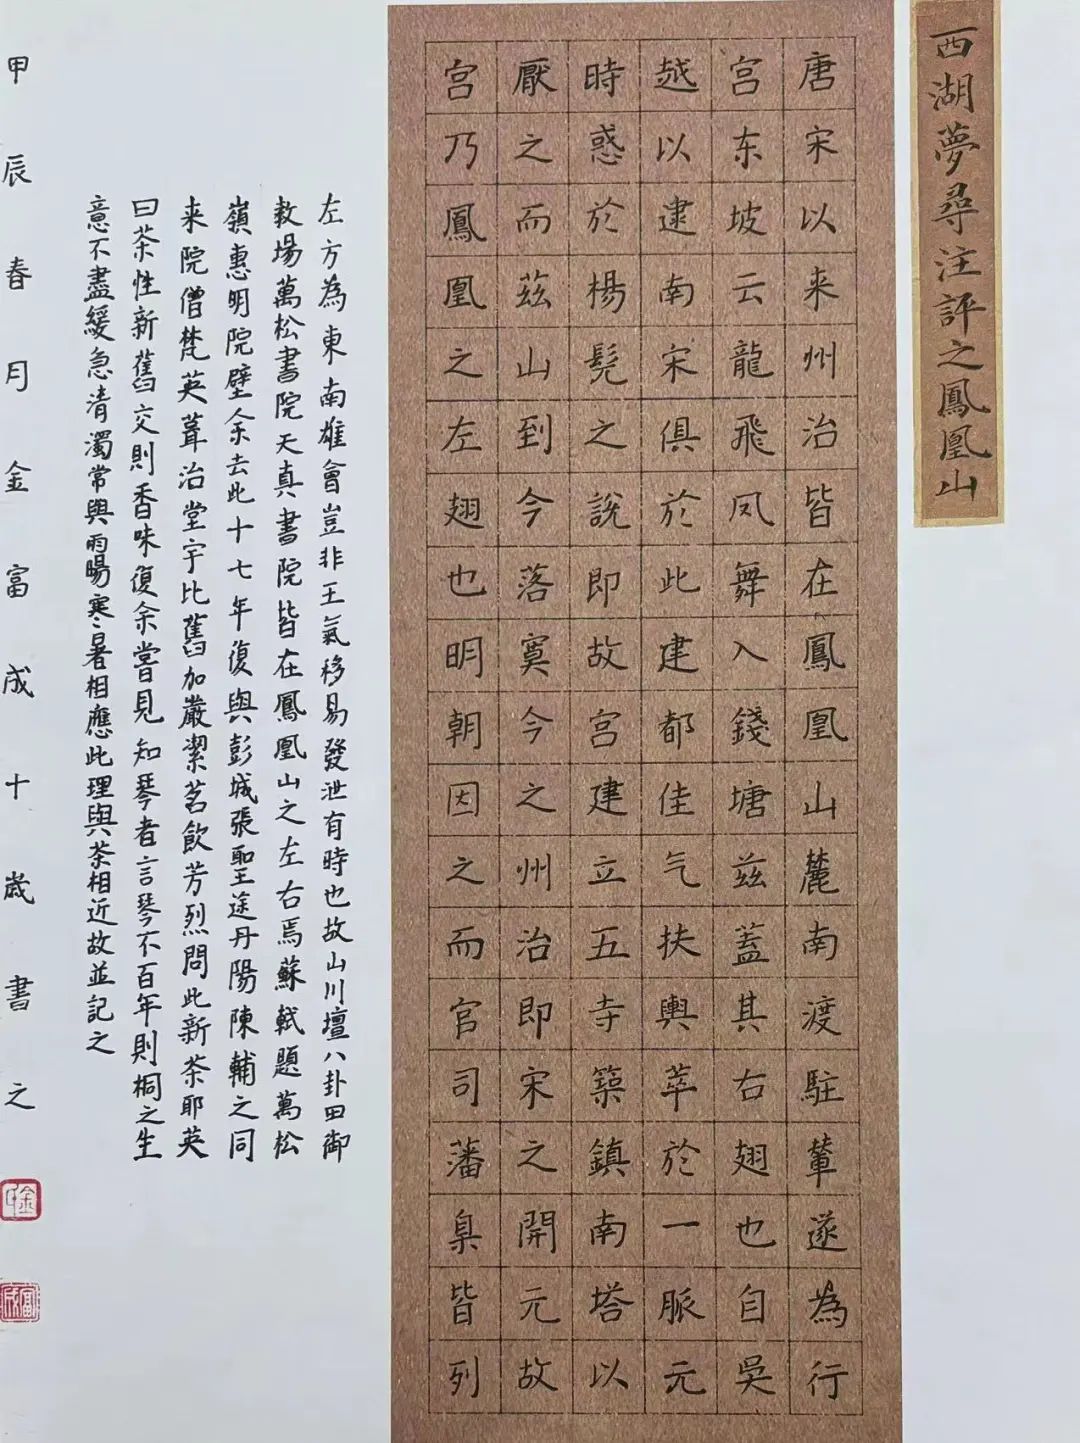 西湖夢尋注評之鳳凰山
唐宋以来州治皆在鳳凰山麓南渡駐輦遂為行
宫东坡云龍飛凤舞入錢塘兹蓋其右翅也自吴
越以逮南宋俱於此建都佳气扶輿萃於一脈元
時惑於楊髡之說即故宫建立五寺築鎮南塔以
厭之而茲山到今落寞今之州治即宋之開元故
宫乃鳳凰之左翅也明朝因之而官司藩臬皆列
左方為東南雄會豈非王氣移易發泄有時也故山川壇八卦田御
教場萬松書院天真書院皆在鳳凰山之左右焉蘇軾題萬松
嶺惠明院壁余去此十七年復與彭城張聖途丹陽陳輔之同
来院僧梵英葺治堂宇比舊加嚴潔茗飲芳烈問此新茶耶英
曰茶性新舊交則香味復余嘗見知琴者言琴不百年則桐之生
意不盡緩急清濁常與雨暘寒暑相應此理與茶相近故並記之
甲辰春月金富成十歲書之
金
富成